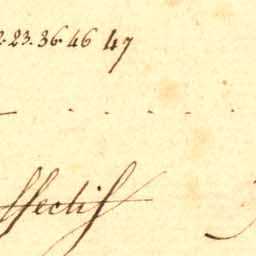 23. 36. 46 47
ffectif